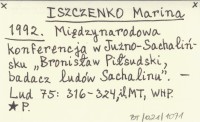 ISZCZENKO Marina
1992. Międzynarodowa
konferencja w Jużno-Sachaliń-
sku „Bronisław Piłsudski,
badacz ludów Sachalinu". –
Lud 75: 316-324, il MT, WHP.
★ P.